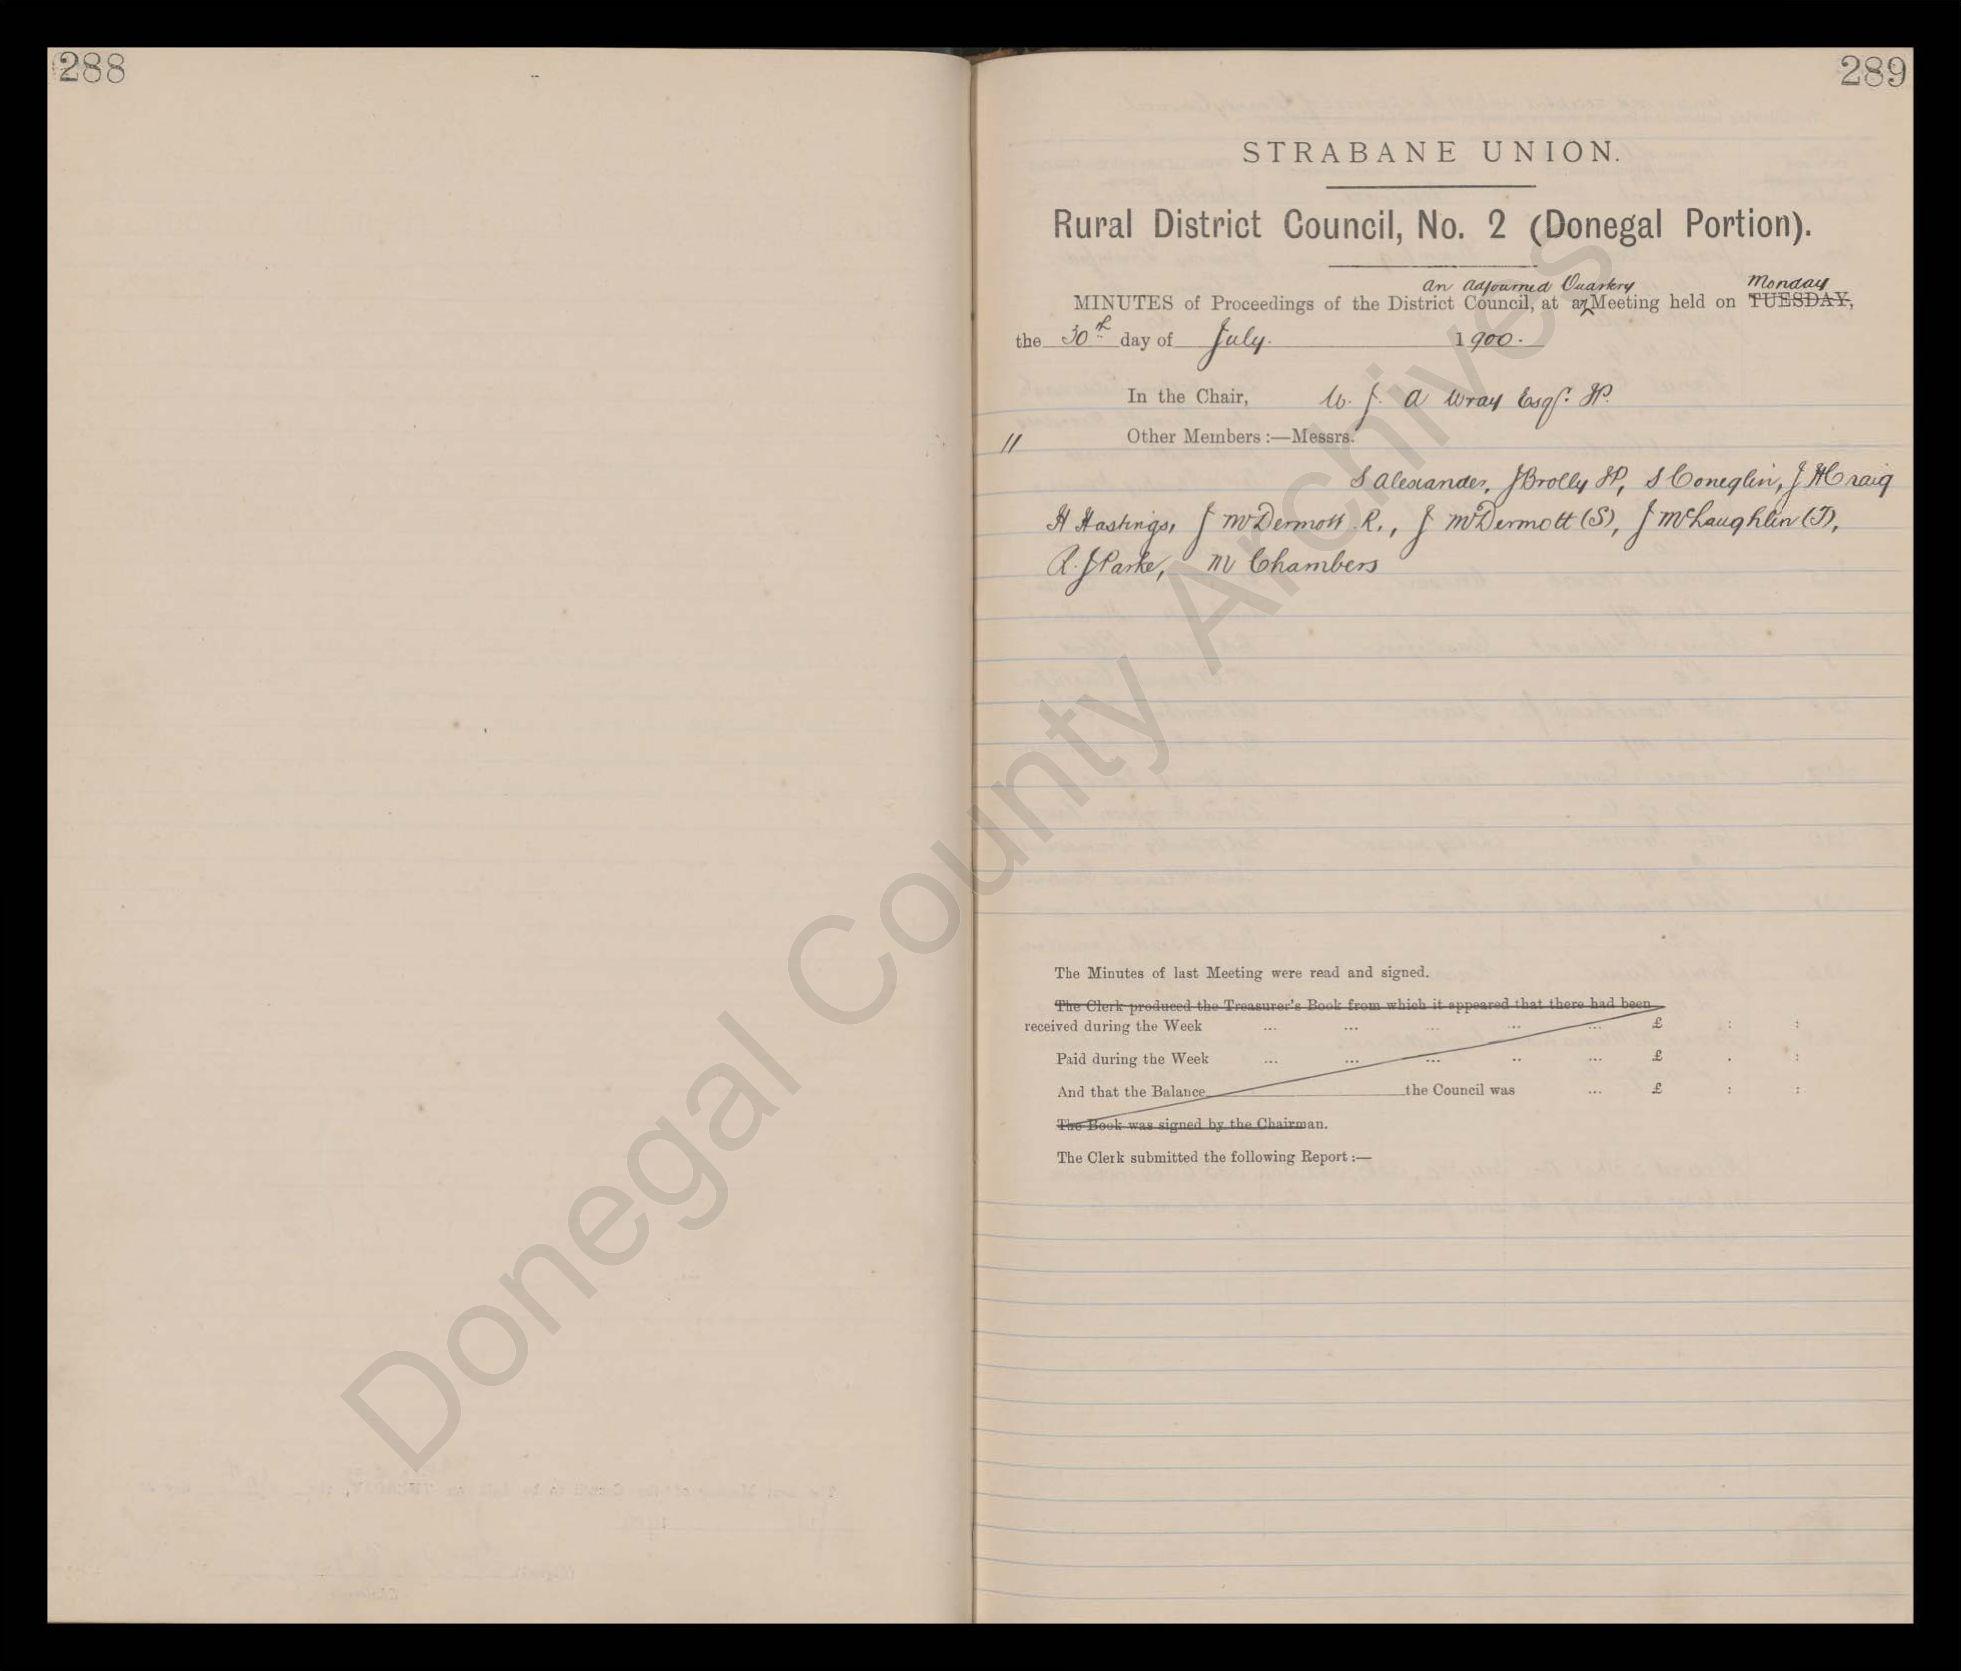 288
289
STRABANE UNION.
Rural District Council, No. 2 (Donegal Portion).
An Adjourned Quarterly Monday
MINUTES of Proceedings of the District Council, at a Meeting held on TUESDAY,
the 30th day of July. 1900.
In the Chair, W. J. A Wray Esqr. JP.
11 Other Members :—Messrs.
S Alexander, J Brolly JP, S Coneglin, J H Craig
H Hastings, J McDermott R., J McDermott (S), J McLaughlin (T),
R. J Parke, M Chambers
The Minutes of last Meeting were read and signed.
The Clerk produced the Treasurer's Book from which it appeared that there had been
received during the Week ... ... ... ... ... £ : :
Paid during the Week ... ... ... .. ... £ . :
And that the Balance the Council was ... £ : :
The Book was signed by the Chairman.
The Clerk submitted the following Report :—
Donegal County Archives